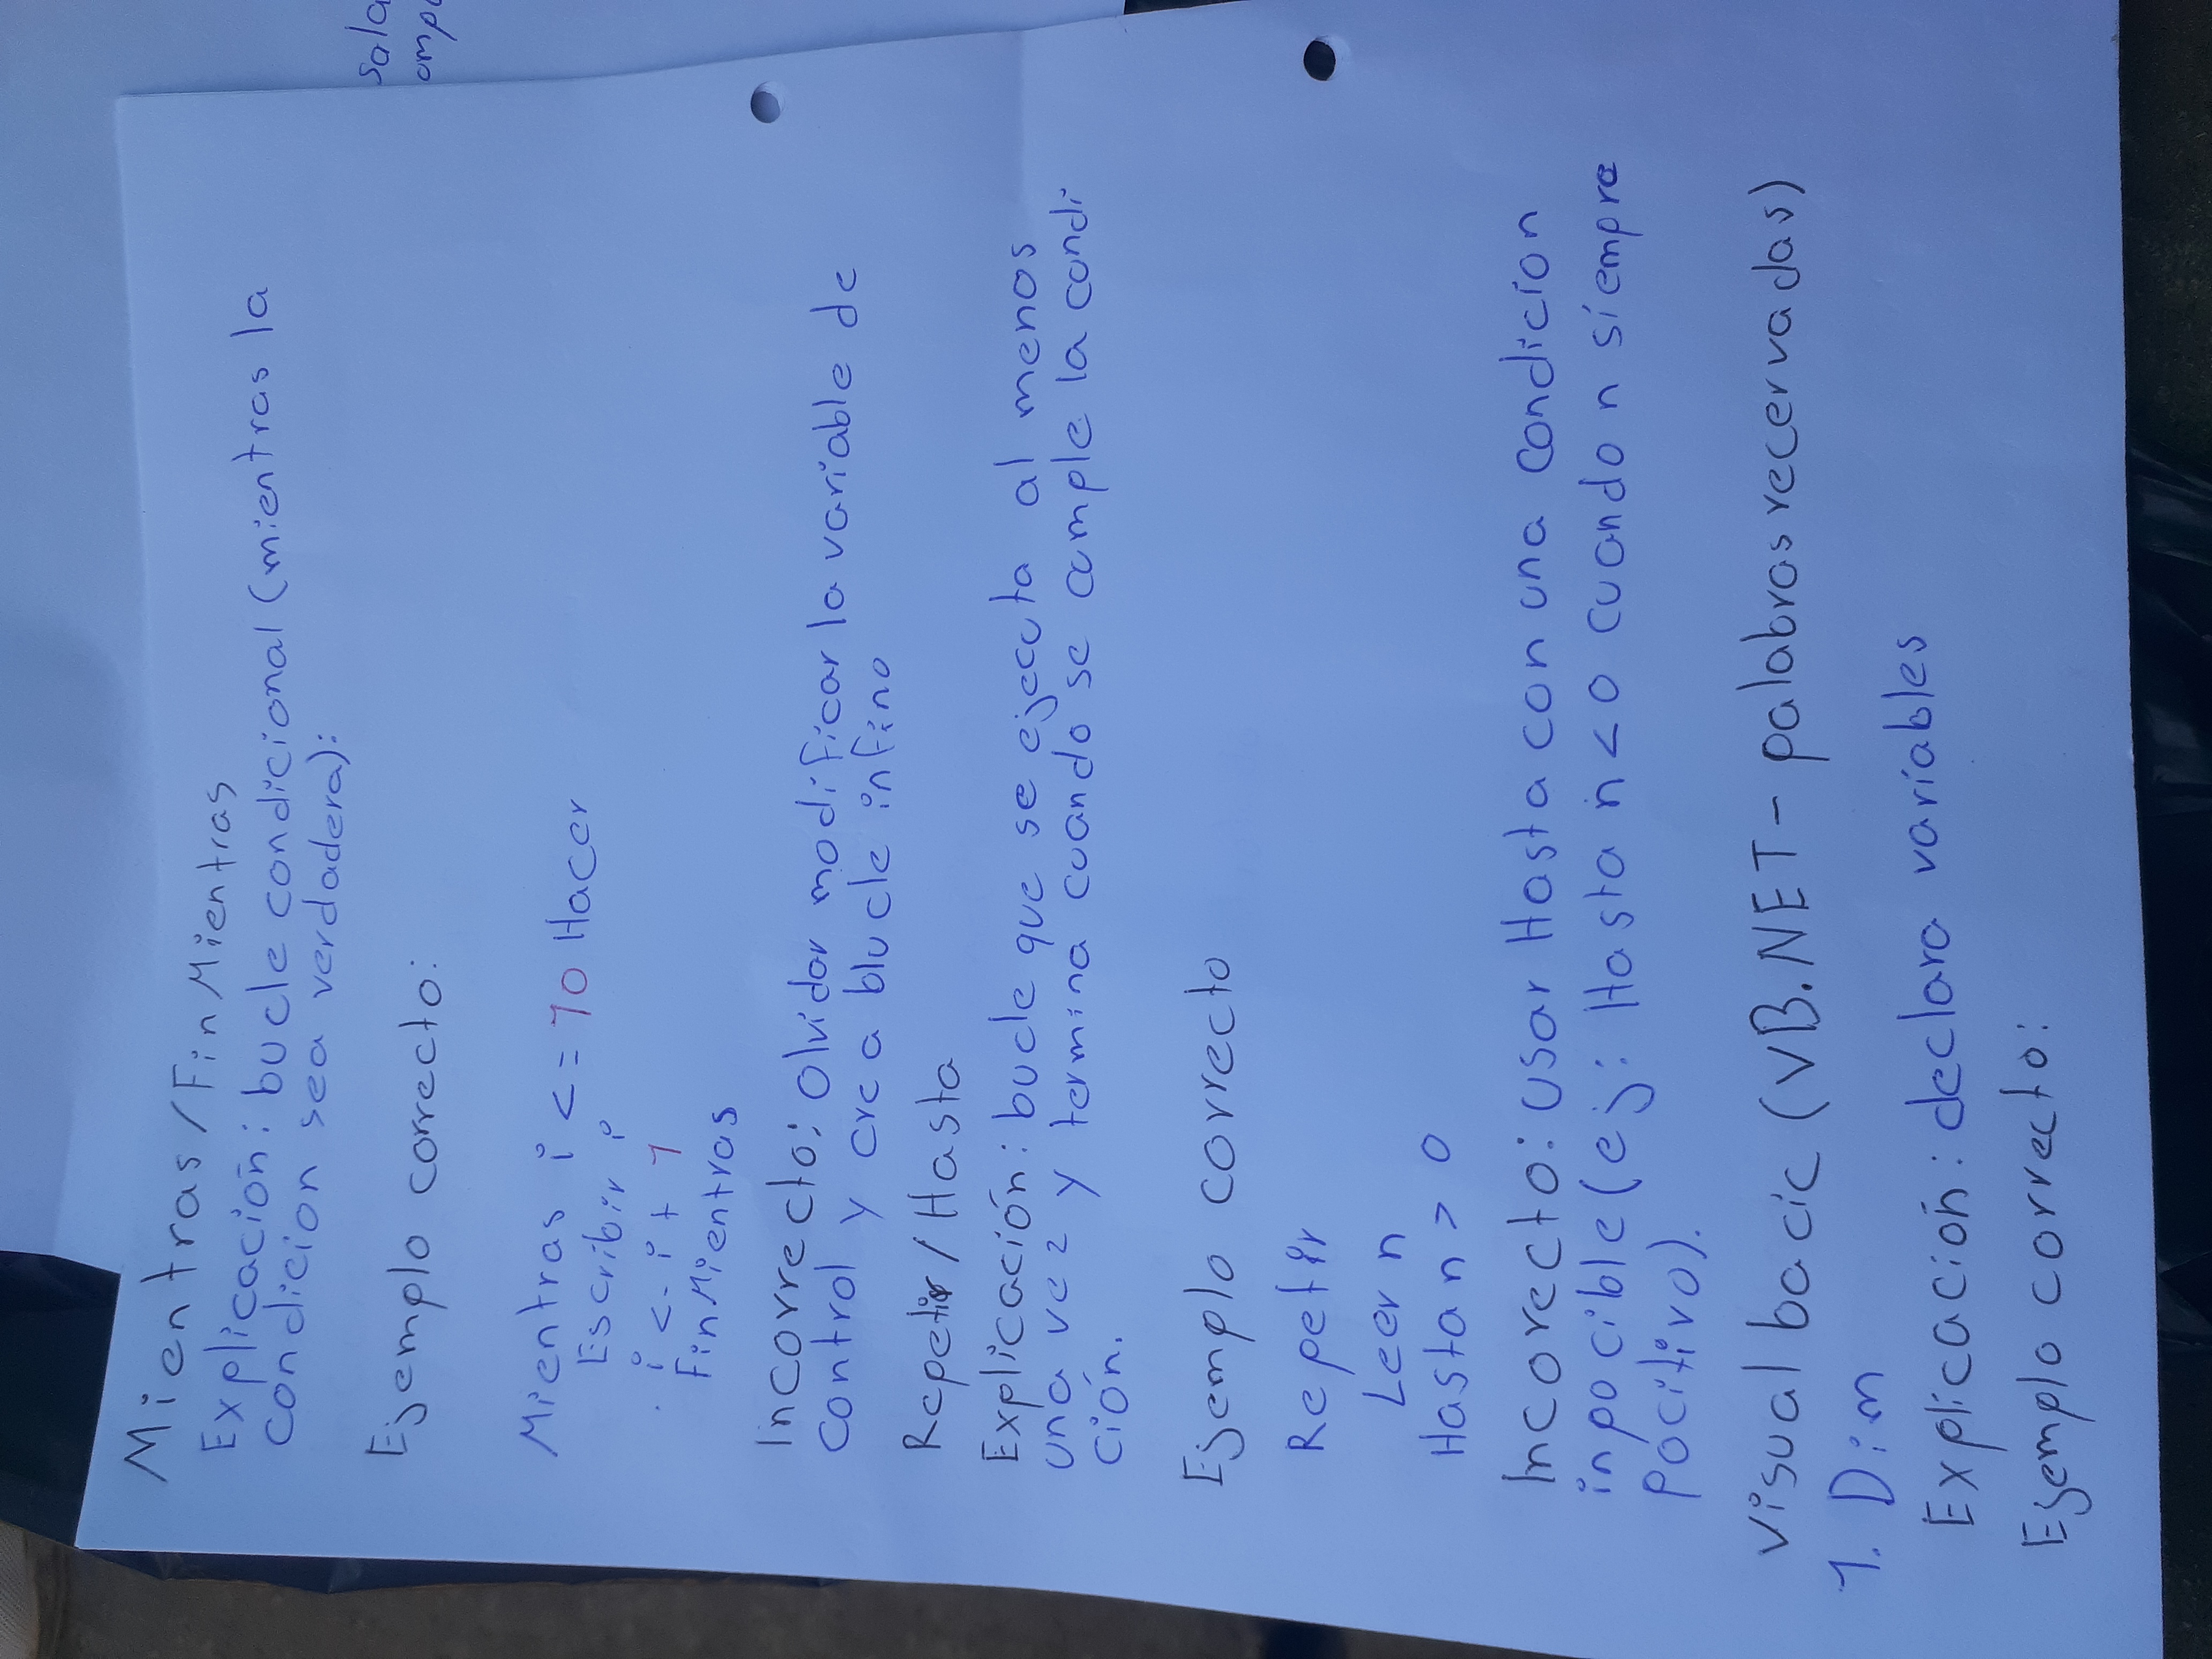 sala
ompa
Mientras/Fin Mientras
Explicación: bucle condicional (mientras la
condicion sea verdadera):
Ejemplo correcto:
Mientras i <= 10 Hacer
Escribir i
i <- i + 1
Fin Mientras
Incorrecto; olvidar modificar la variable de
control y crea blucle infino
Repetir/Hasta
Explicación: bucle que se ejecuta al menos
una vez y termina cuando se cumple la condi
ción.
Ejemplo correcto
Repetir
Leer n
Hasta n > 0
Incorecto: usar Hasta con una condicion
inpocible (ej: Hasta n < 0 cuando n siempre
pocitivo).
visual bacic (VB.NET - palabras recervadas)
1. Dim
Explicación: declara variables
Ejemplo correcto: